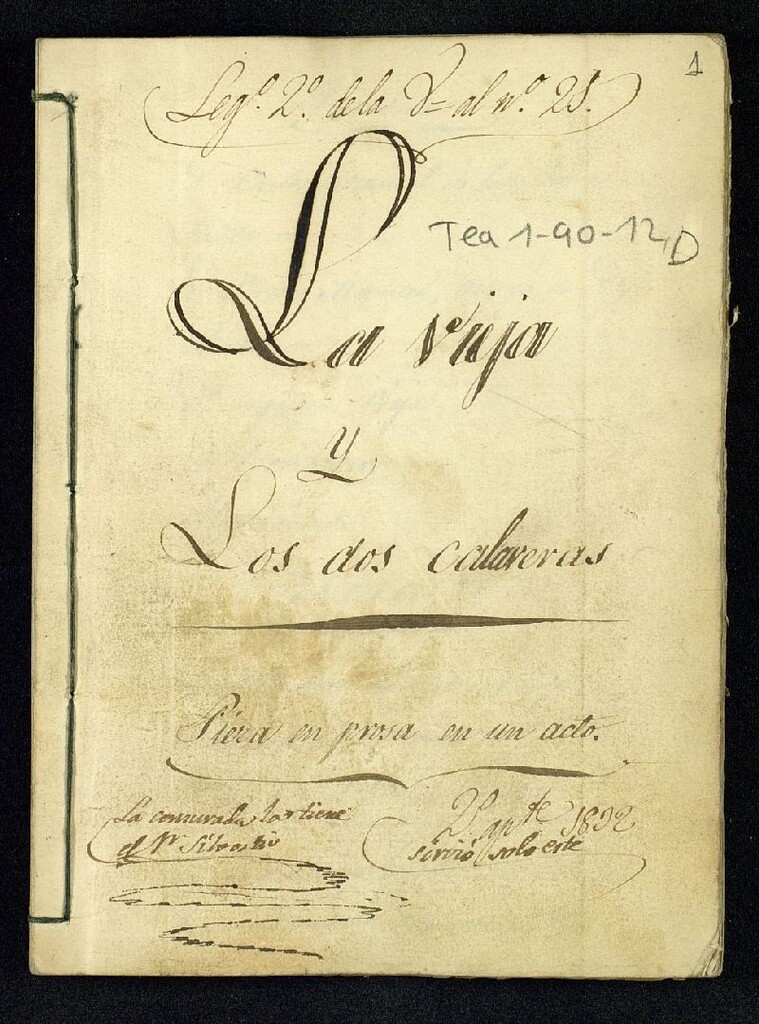 1
Legº. 2º. de la V= al nº. 25.
Tea 1-90-12, D
La vieja
y
Los dos calaveras
Pieza en prosa en un acto.
La censurada la tiene
el Sr Silvostri
2º apte 1832
sirvió solo este